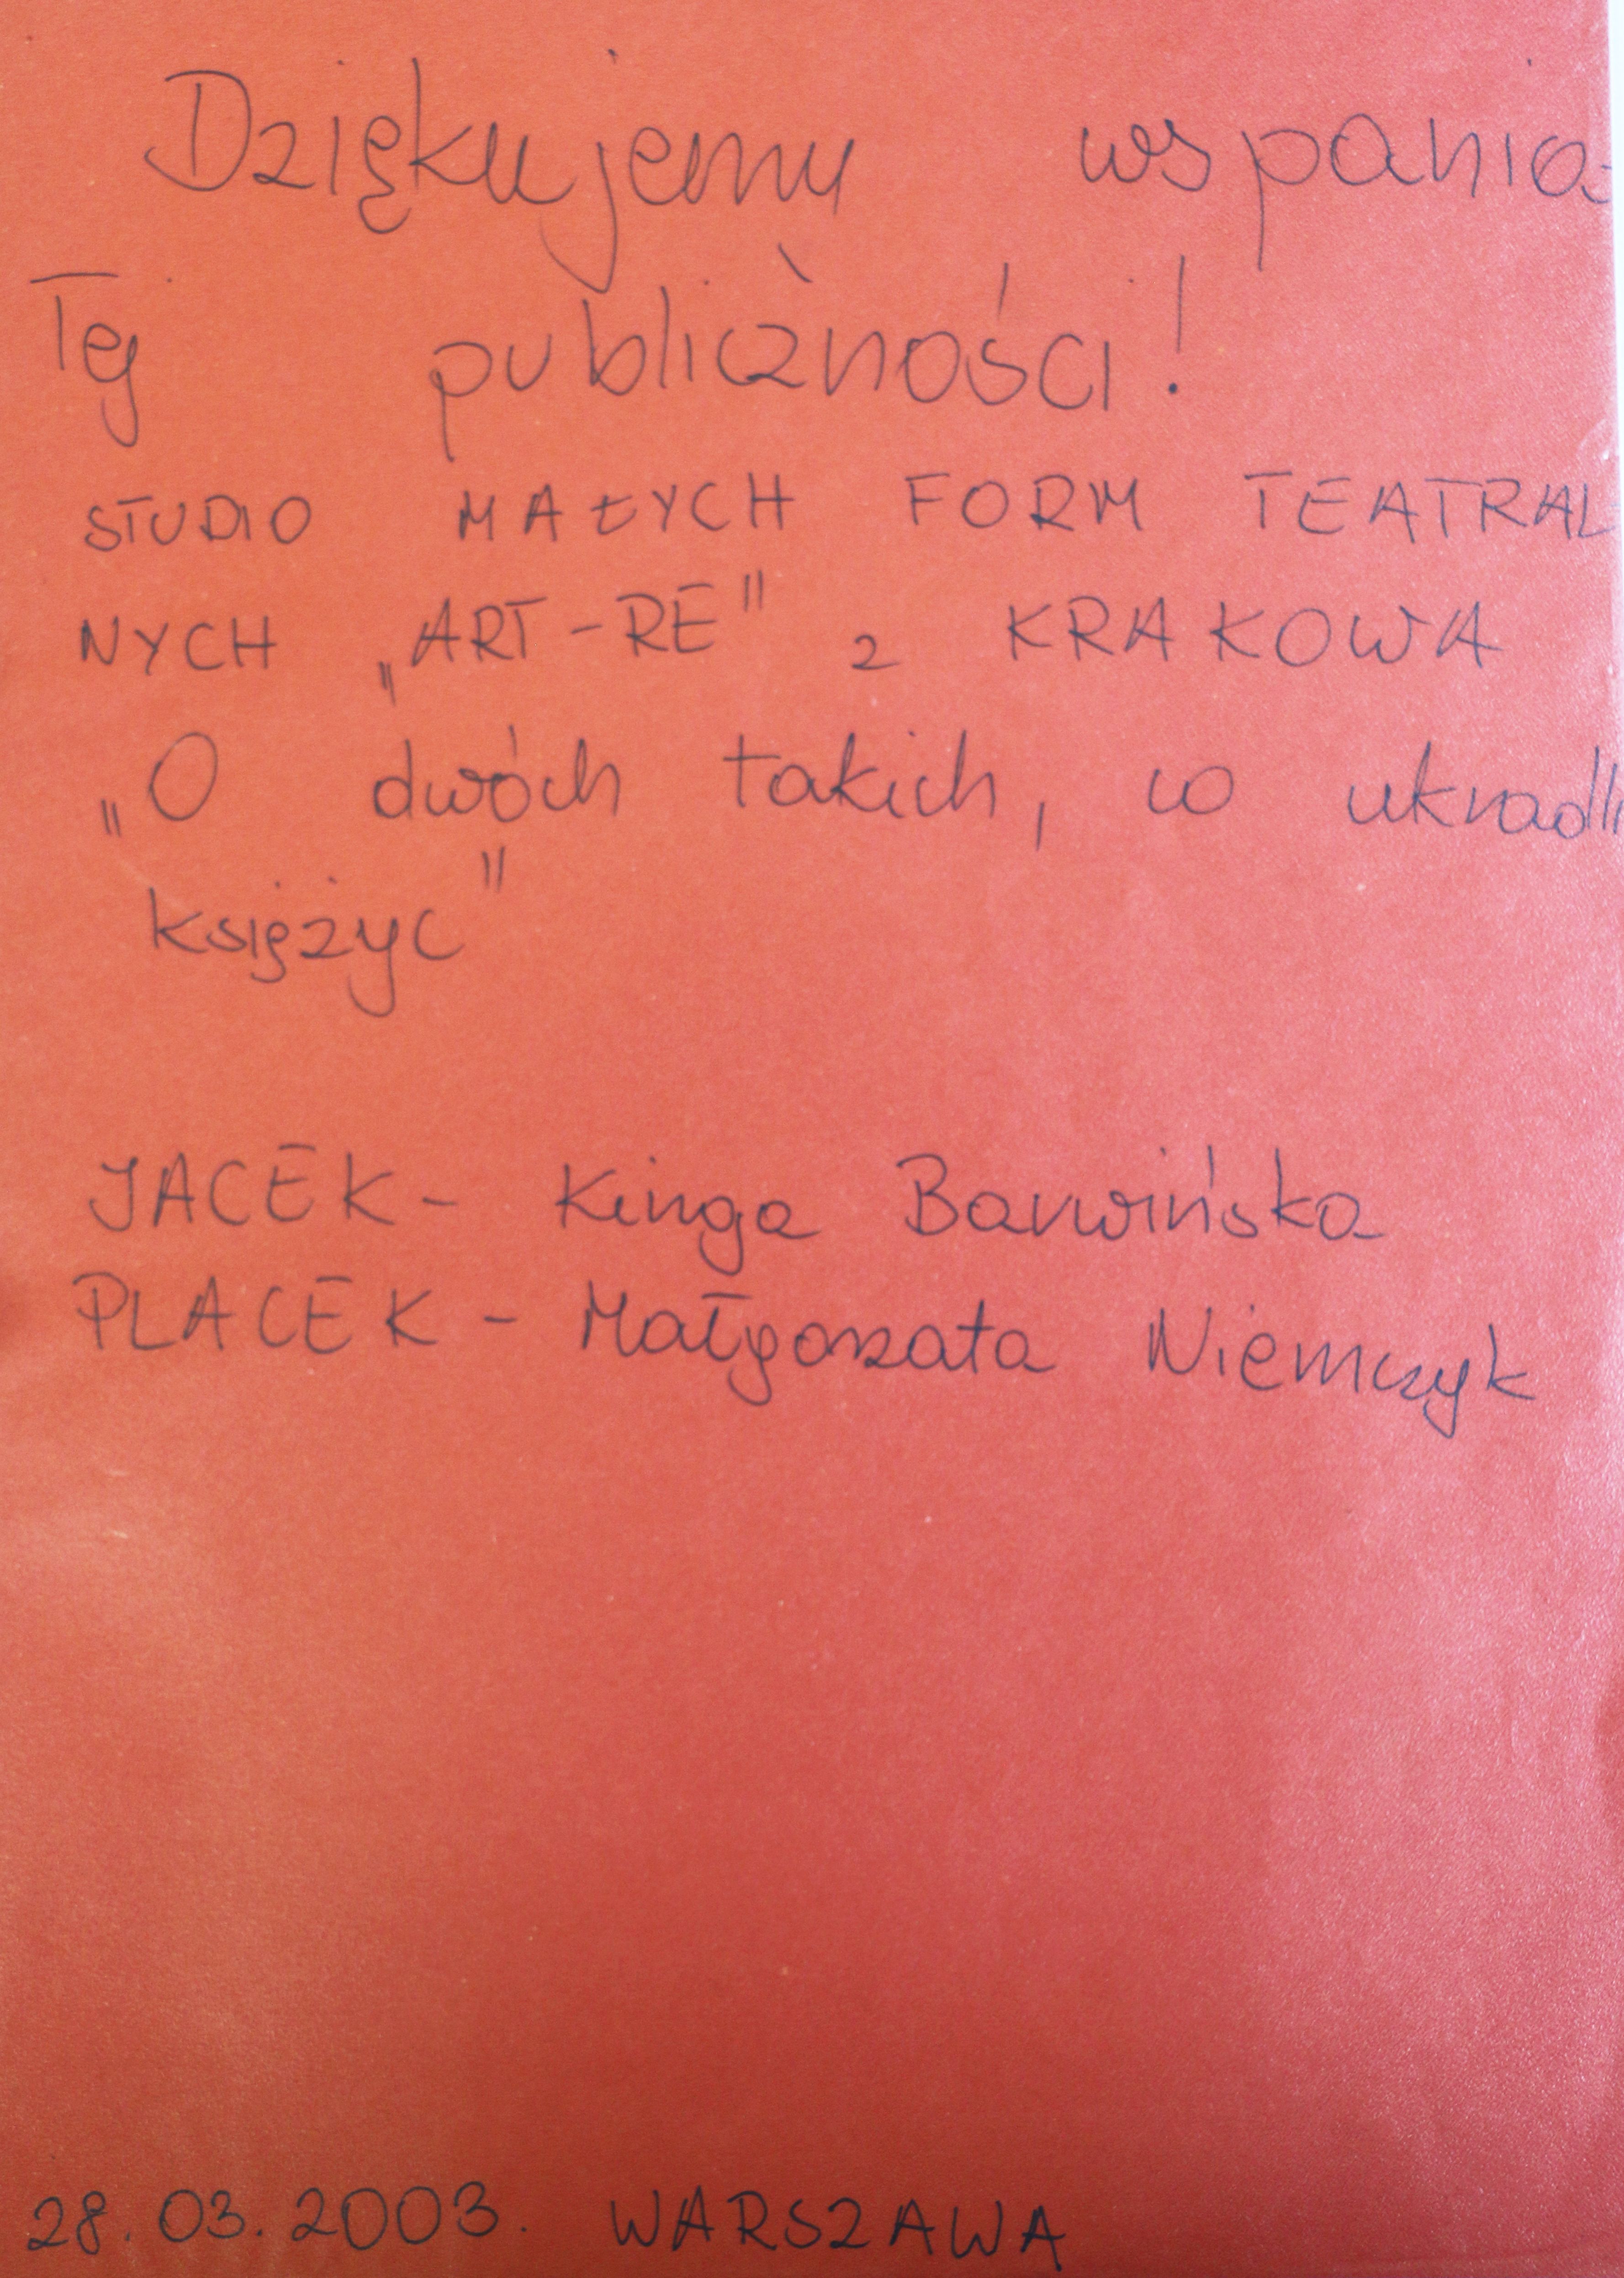 Dziękujemy wspania-
łej publiczności!
STUDIO MAŁYCH FORM TEATRAL
NYCH „ART-RE" z KRAKOWA
„O dwóch takich, co ukradli
księżyc"
JACEK - Kinga Barwińska
PLACEK - Małgorzata Niemczyk
28.03.2003. WARSZAWA